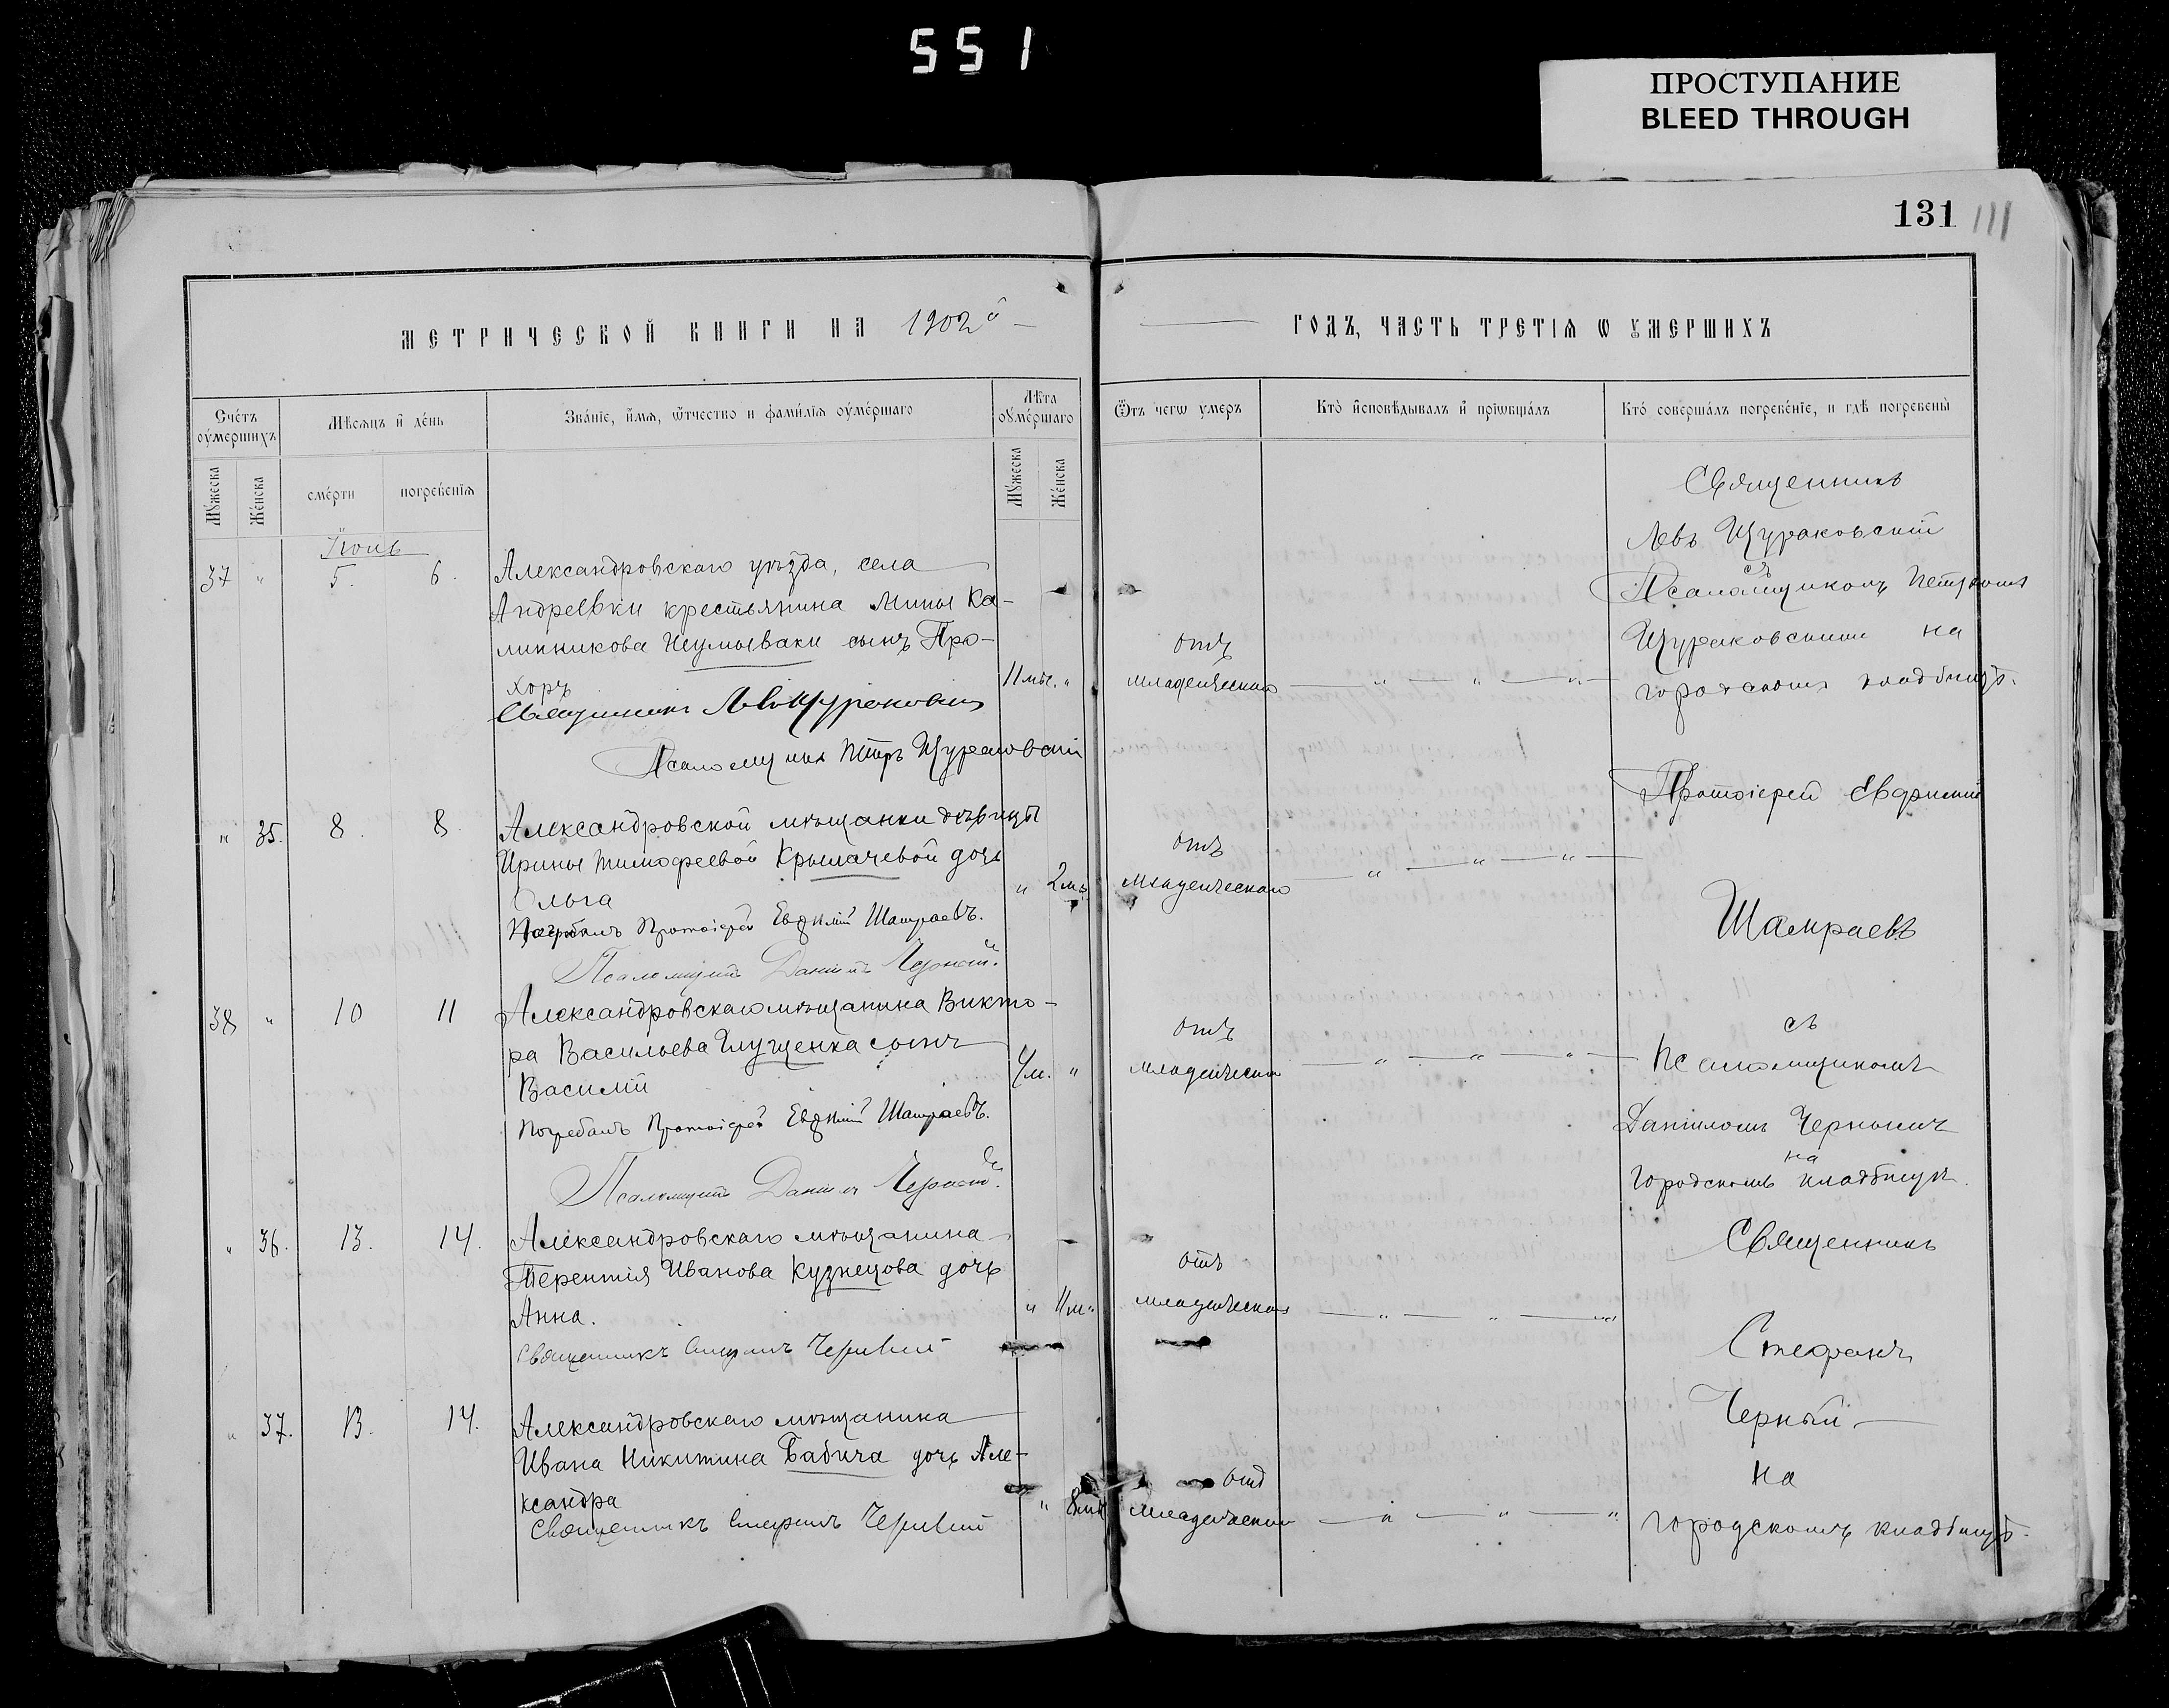 551
ПРОСТУПАНИЕ
BLEED THROUGH
131 111
МЕТРИЧЕСКОЙ КНИГИ НА 1902й
ГОДЪ, ЧАСТЬ ТРЕТІѦ Ѡ УМЕРШИХЪ
Счетъ оумершихъ
Мѣсяцъ и день
Званіе, имя, ѿчество и фамилія оумершаго
Лѣта оумершаго
Ѿъ чегѡ умеръ
Кто исповѣдывалъ и пріѡбщалъ
Кто совершалъ погребеніе, и гдѣ погребены
Мужеска
Женска
смерти
погребенія
Мужеска
Женска
Іюнь
37 " 5. 6.
Александровскаго уѣзда, села
Андреевки крестьянина Мины Ка-
линникова Неумываки сынъ Про-
хоръ
11 мѣс. "
отъ
младенческаго
Священникъ
Левъ Щураковскій
съ
Псаломщикомъ Петромъ
Щураковскимъ на
городскомъ кладбищѣ.
Священникъ Левъ Щураковскій
Псаломщикъ Петръ Щураковскій
" 35. 8. 8.
Александровской мѣщанки дѣвицы
Ирины Тимофеевой Крымачевой дочь
Ольга
" 2 м.
отъ
младенческаго
Протоіерей Евфимій
Шамраевъ
Погребалъ Протоіерей Евфимій Шамраевъ.
Псаломщикъ Даніилъ Черный.
38 " 10 11
Александровскаго мѣщанина Викто-
ра Васильева Глущенка сынъ
Василій
4 м. "
отъ
младенческаго
съ
Псаломщикомъ
Даніиломъ Чернымъ
на
городскомъ кладбищѣ.
Погребалъ Протоіерей Евфимій Шамраевъ.
Псаломщикъ Даніилъ Черный.
" 36. 13. 14.
Александровскаго мѣщанина
Терентія Иванова Кузнецова дочь
Анна.
" 11 м.
отъ
младенческаго
Священникъ
Стефанъ
Черный
на
городскомъ кладбищѣ.
Священникъ Стефанъ Черный
" 37. 13. 14.
Александровскаго мѣщанина
Ивана Никитина Бабича дочь Але-
ксандра
" 8 мѣс
отъ
младенческаго
Священникъ Стефанъ Черный